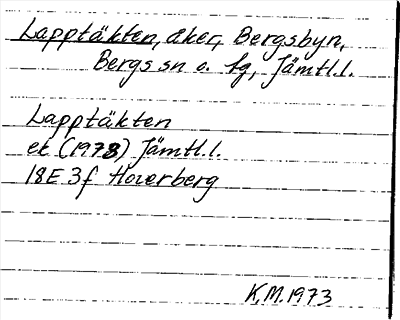 Lapptäkten, åker, Bergsbyn,
Bergs sn o. tg, Jämtl.l.
Lapptäkten
ek (1973) Jämtl.l.
18E 3f Hoverberg
K.M. 1973